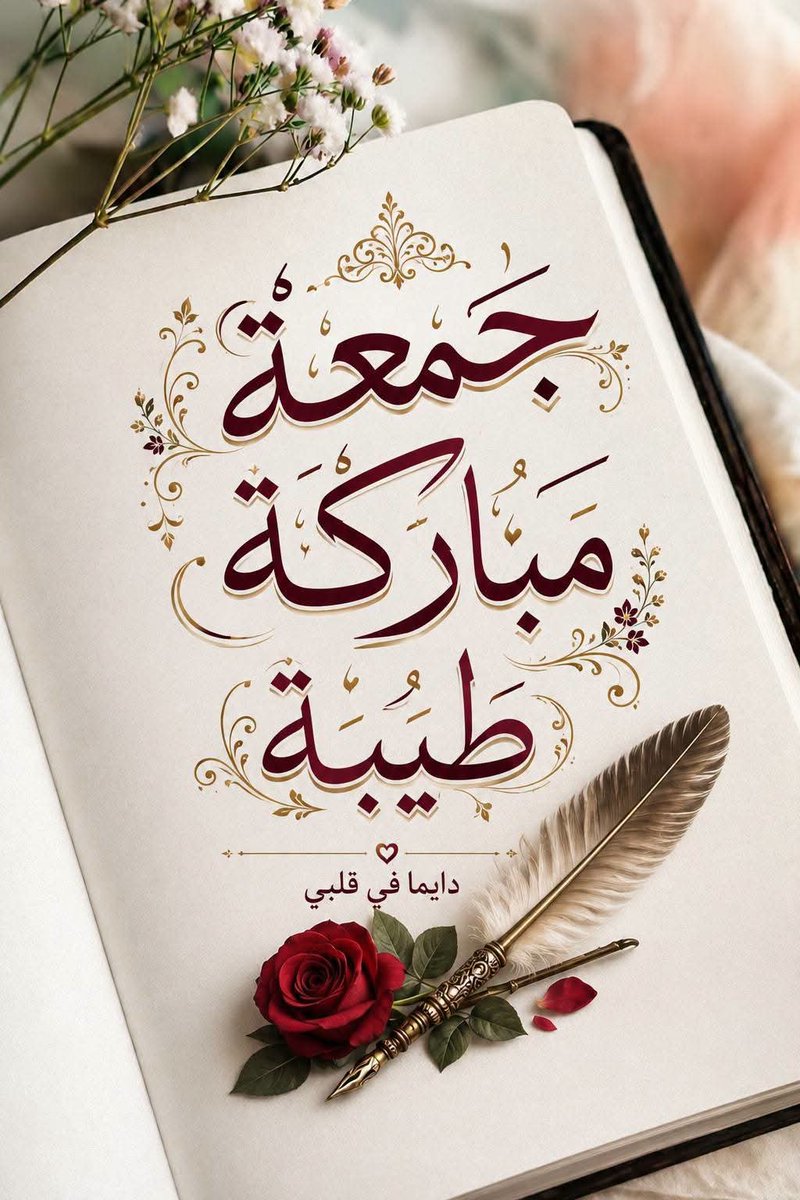 جمعة
مباركة
طيبة
دايما في قلبي